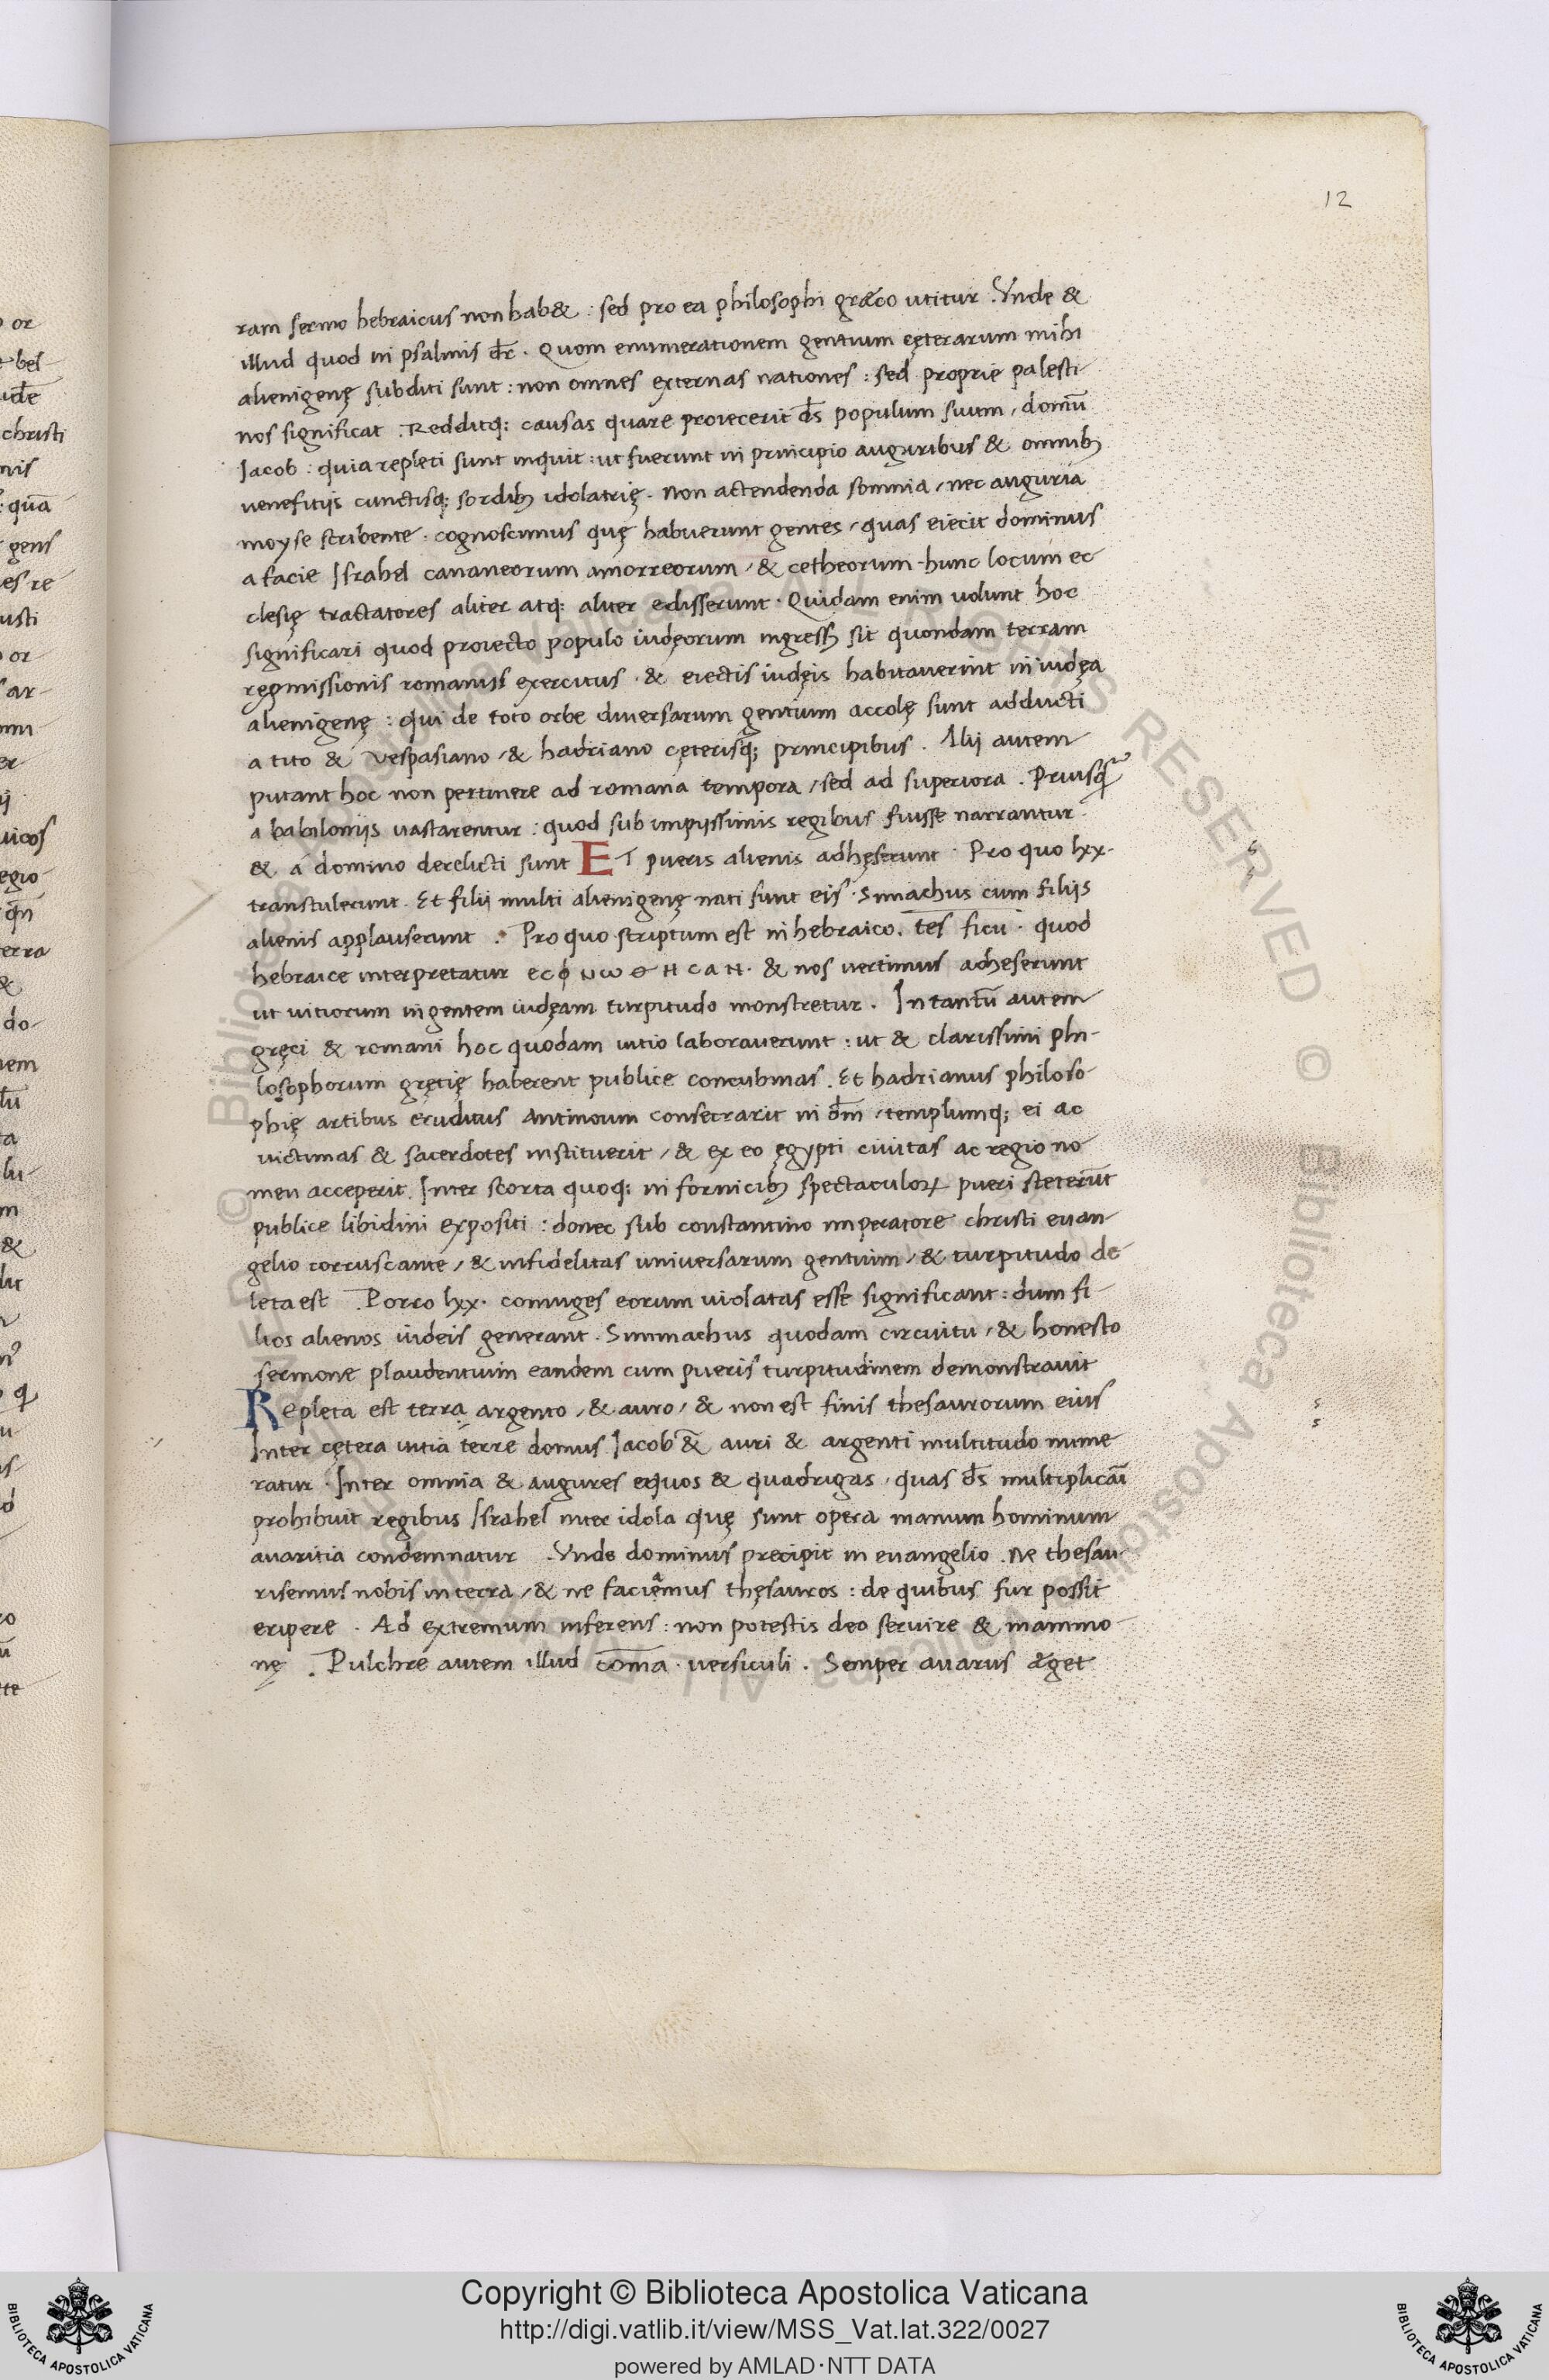 12
ram sermo hebraicus non hab& : sed pro ea philosophi græco utitur . Vnde &
illud quod in psalmis dr̄ . Quom enumerationem gentium cęterarum mihi
alienigenę subditi sunt : non omnes externas nationes : sed proprie palesti-
nos significat . Redditq; causas quare proiecerit ds̄ populum suum / domū
Jacob : quia repleti sunt inquit : ut fuerunt in principio auguribus & omnibꝫ
uenefitijs cunctisq; sordibꝫ idolatrię . Non actendenda somnia / nec auguria
moyse scribente . cognoscimus quę habuerunt gentes / quas eiecit dominus
a facie Israhel cananeorum amorreorum / & cetheorum . hunc locum ec
clesię tractatores aliter atq; aliter edisserunt . Quidam enim uolunt hoc
significari quod proiecto populo iudęorum ingressꝫ sit quondam terram
repmissionis romanuss exercitus . & eiectis iudęis habitauerint in iudęa
alienigenę : qui de toto orbe diuersarum gentium accolę sunt adducti
a tito & vespasiano / & hadriano cęterisq; principibus . Alij autem
putant hoc non pertinere ad romana tempora / sed ad superiora . Priusꝙ
a babilonijs uastarentur : quod sub impijssimis regibus fuisse narrantur
& a domino derelicti sunt ET pueris alienis adhęserunt . Pro quo lxx .
transtulerunt . Et filij multi alienigenę nati sunt eis . Simachus cum filijs
alienis applauserunt . Pro quo scriptum est in hebraico . tes̄ ficu . quod
hebraice interpretatur ЄCΦΝωΘΗCΑΝ . & nos vertimus adheserunt
ut uitiorum in gentem iudęam turpitudo monstretur . In tantū autem
gręci & romani hoc quodam uitio laborauerunt : ut & clarissimi phi-
losophorum gręcię haberent publice concubinas . Et hadrianus philoso-
phię artibus eruditus Antinoum consecrarit in dm̄ / templumq; ei ac
uictimas & sacerdotes instituerit / & ex eo ęgypti ciuitas ac regio no-
men acceperit . Inter scorta quoq; in fornicibꝫ spectaculoꝝ pueri steterūt
publice libidini expositi : donec sub constantino imperatore christi euan-
gelio corruscante / & infidelitas universarum gentium / & turpitudo de-
leta est . Porro lxx . coniuges eorum uiolatas esse significant : dum fi-
lios alienos iudeis generant . Simmachus quodam circuitu / & honesto
sermone plaudentium eandem cum pueris turpitudinem demonstrauit
Repleta est terra argento / & auro / & non est finis thesaurorum eius
Inter cętera uitia terre domus Jacob & auri & argenti multitudo nume
ratur . Inter omnia & augures equos & quadrigas / quas ds̄ multiplicāi
prohibuit regibus Israhel inter idola quę sunt opera manuum hominum
auaritia condemnatur . Vnde dominus precipit in euangelio . Ne thesau-
risemus nobis in terra / & ne faciemus thęsauros : de quibus fur possit
eripere . Ad extremum inferens : non potestis deo seruire & mammo-
nę . Pulchre autem illud com̄a . versiculi . Semper auarus æget
Copyright © Biblioteca Apostolica Vaticana
http://digi.vatlib.it/view/MSS_Vat.lat.322/0027
powered by AMLAD·NTT DATA